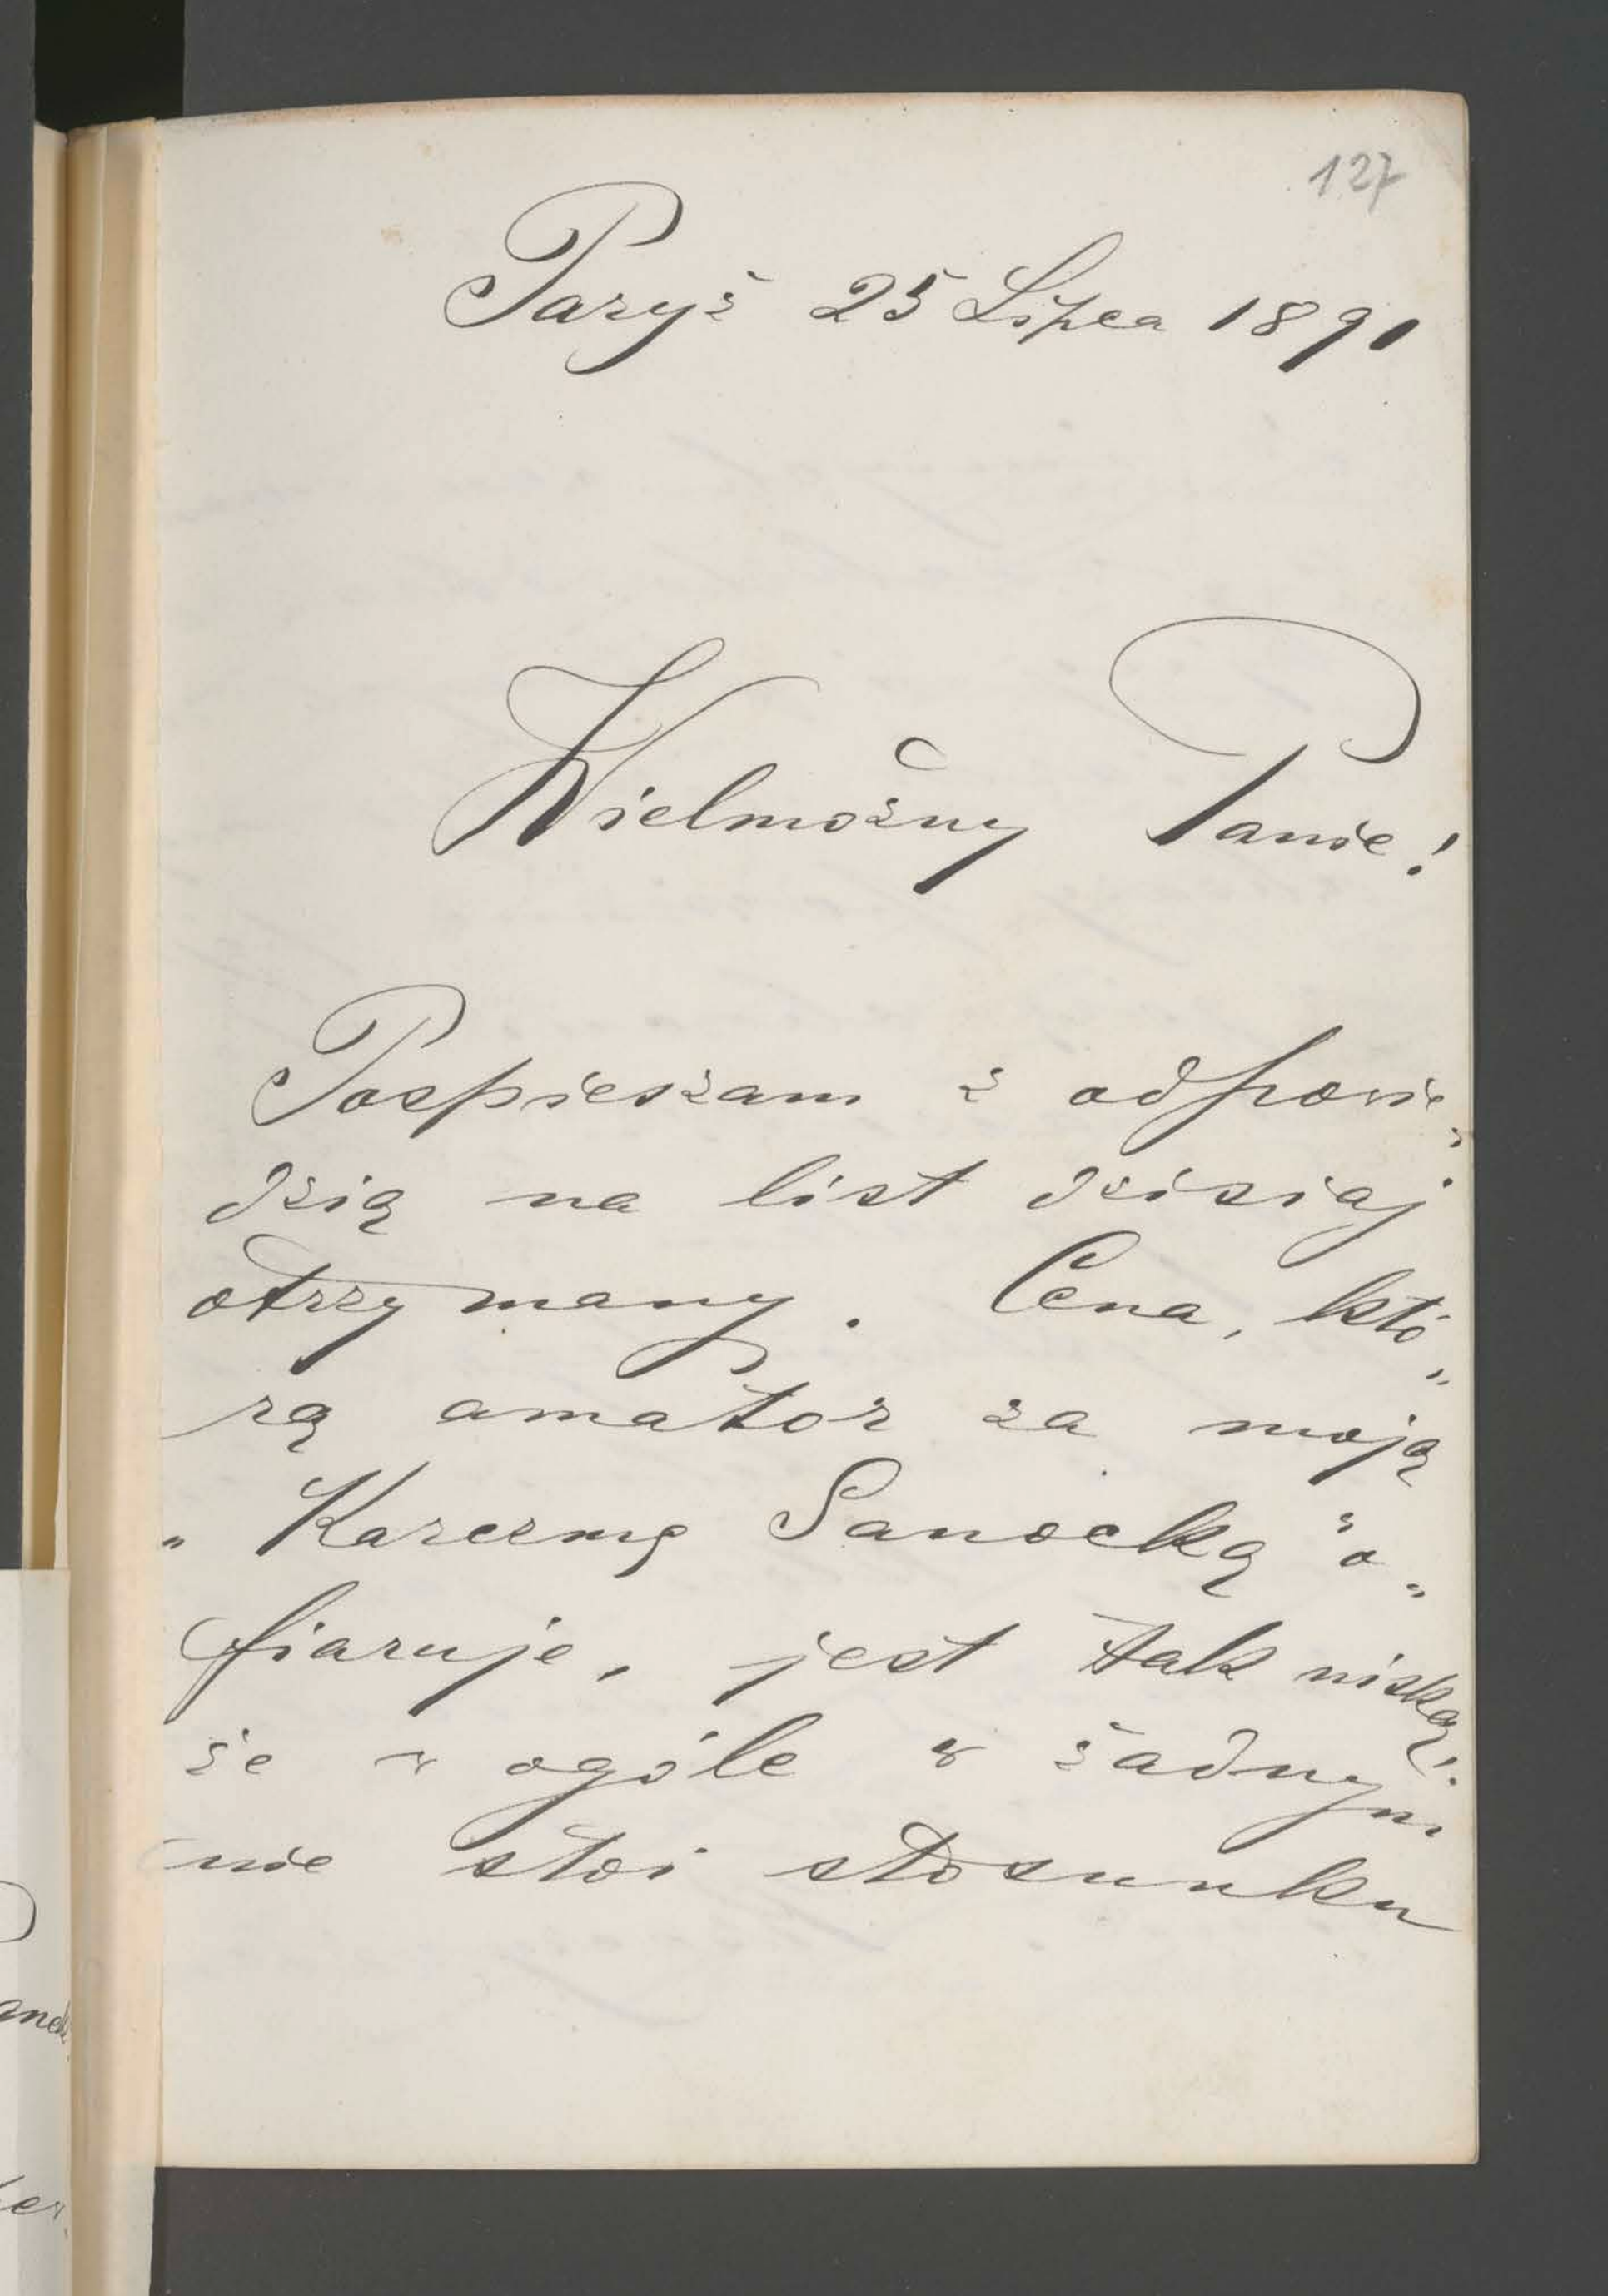 127
Paryż 25 Lipca 1891
Wielmożny Panie!
Pospieszam z odpowie„
dzią na list dzisiaj
otrzymany. Cena, któ„
rą amator za moją
„Karczmę Sanocką" o„
fiaruje, jest tak niską,
że w ogóle w żadnym
nie stoi stosunku